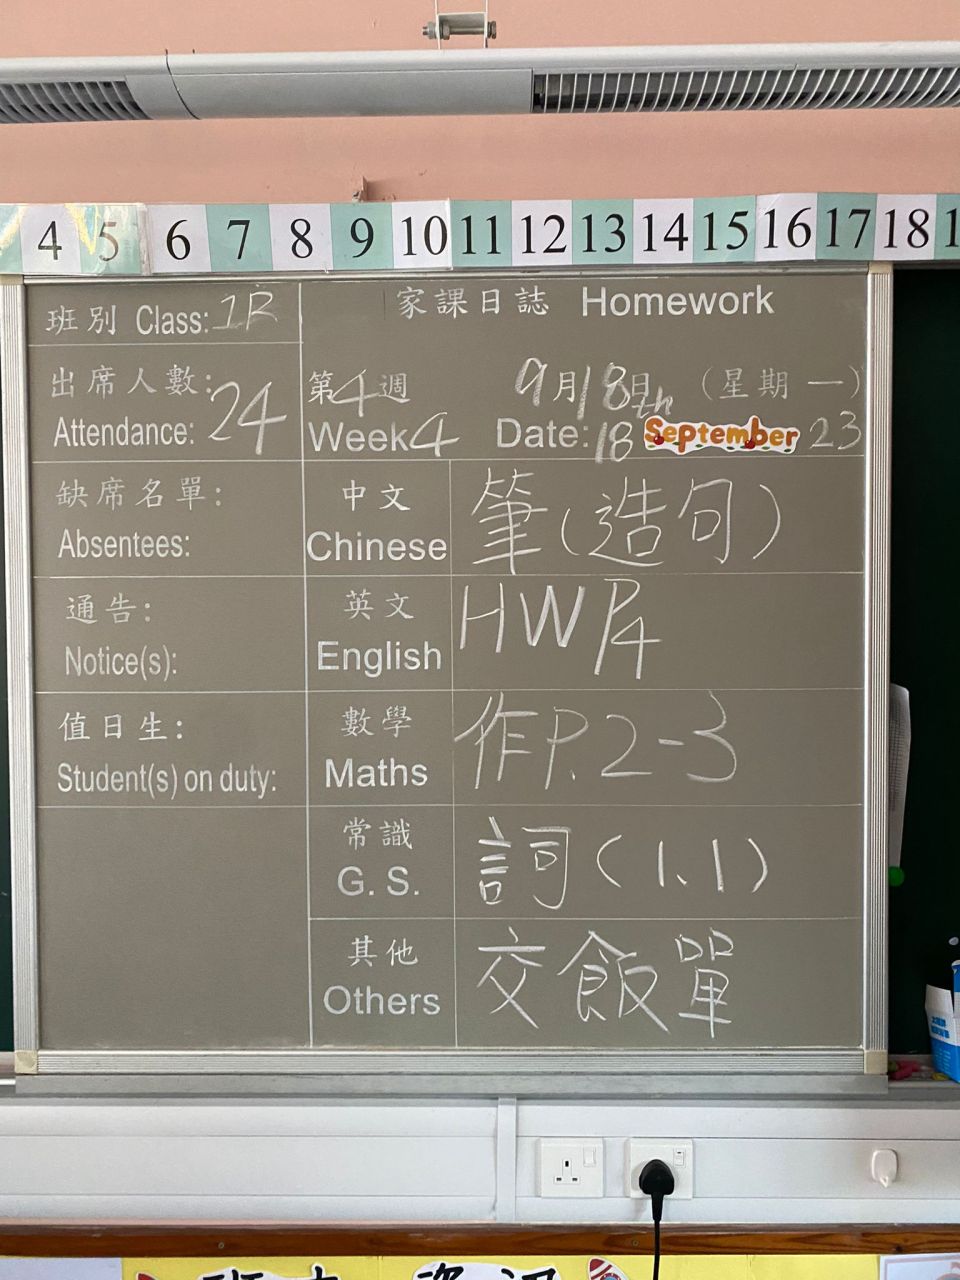 4 5 6 7 8 9 10 11 12 13 14 15 16 17 18
班別 Class: 1R
家課日誌 Homework
出席人數:
Attendance: 24
第4週
Week 4
9月18日 (星期一)
Date: 18th September 23
缺席名單:
Absentees:
中文
Chinese
筆(造句)
通告:
Notice(s):
英文
English
HW P4
值日生:
Student(s) on duty:
數學
Maths
作P.2-3
常識
G. S.
詞(1.1)
其他
Others
交飯單